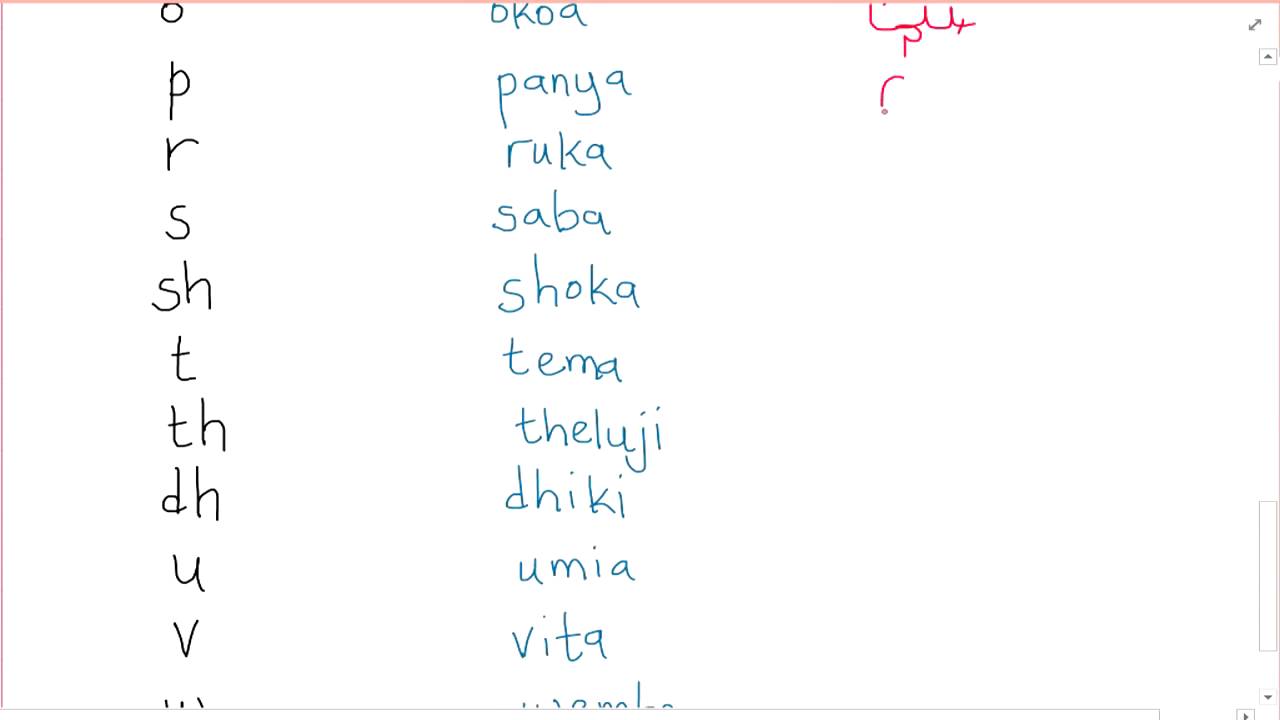 o okoa
p panya
r ruka
s saba
sh shoka
t tema
th theluji
dh dhiki
u umia
v vita